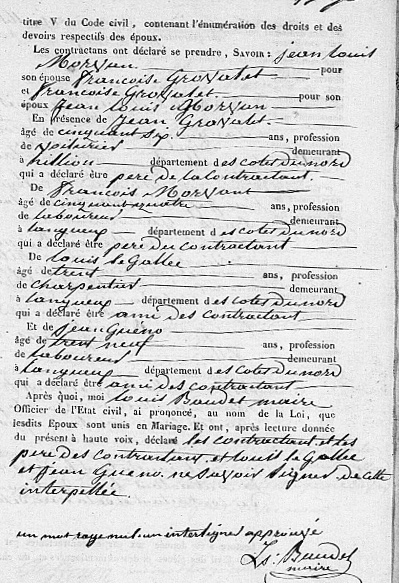 titre V du Code civil, contenant l'énumération des droits et des
devoirs respectifs des époux.
Les contractans ont déclaré se prendre, SAVOIR : jean Louis
Morvan pour
son épouse francoise Grovalet
et francoise Grovalet pour son
époux jean Louis Morvan
En présence de Jean Grovalet
âgé de cinquant six ans, profession
de voiturier demeurant
à hillion département des cotes du nord
qui a déclaré être pere de la contractant.
De francois Morvant
âgé de cinquant quatre ans, profession
de laboureur demeurant
à langueux département des cotes du nord
qui a déclaré être pere du contractant
De Louis le Gallée
âgé de trent ans, profession
de charpentier demeurant
à langueux département des cotes du nord
qui a déclaré être ami des contractant
Et de Jean Guéno
âgé de trent neuf ans, profession
de laboureur demeurant
à langueux département des cotes du nord
qui a déclaré être ami des contractant
Après quoi, moi Louis Baudet maire
Officier de l'Etat civil, ai prononcé, au nom de la Loi, que
lesdits Epoux sont unis en Mariage. Et ont, après lecture donnée
du présent à haute voix, déclaré les contractant et les
pere des contractant et Louis le Gallée
et jean Gueno ne savoir signer de cette
interpellée.
un mot rayé nul un interligne approuvé
Ls: Baudet
maire